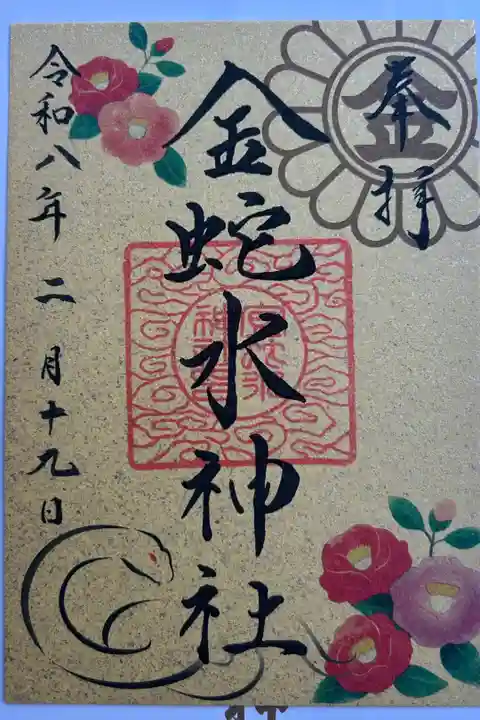 奉拝
金
金蛇水神社
令和八年二月十九日